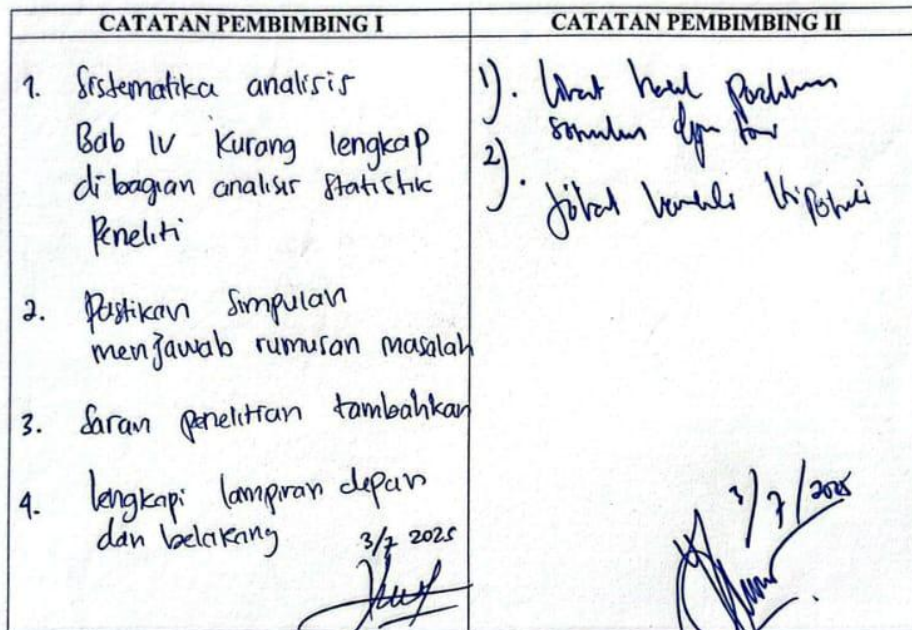 CATATAN PEMBIMBING I
1. Sistematika analisis
Bab IV Kurang lengkap
dibagian analisis Statistik
Peneliti
2. Pastikan Simpulan
menjawab rumusan masalah
3. Saran penelitian tambahkan
4. lengkapi lampiran depan
dan belakang
3/7 2025
CATATAN PEMBIMBING II
1).
2).
3/7/2025